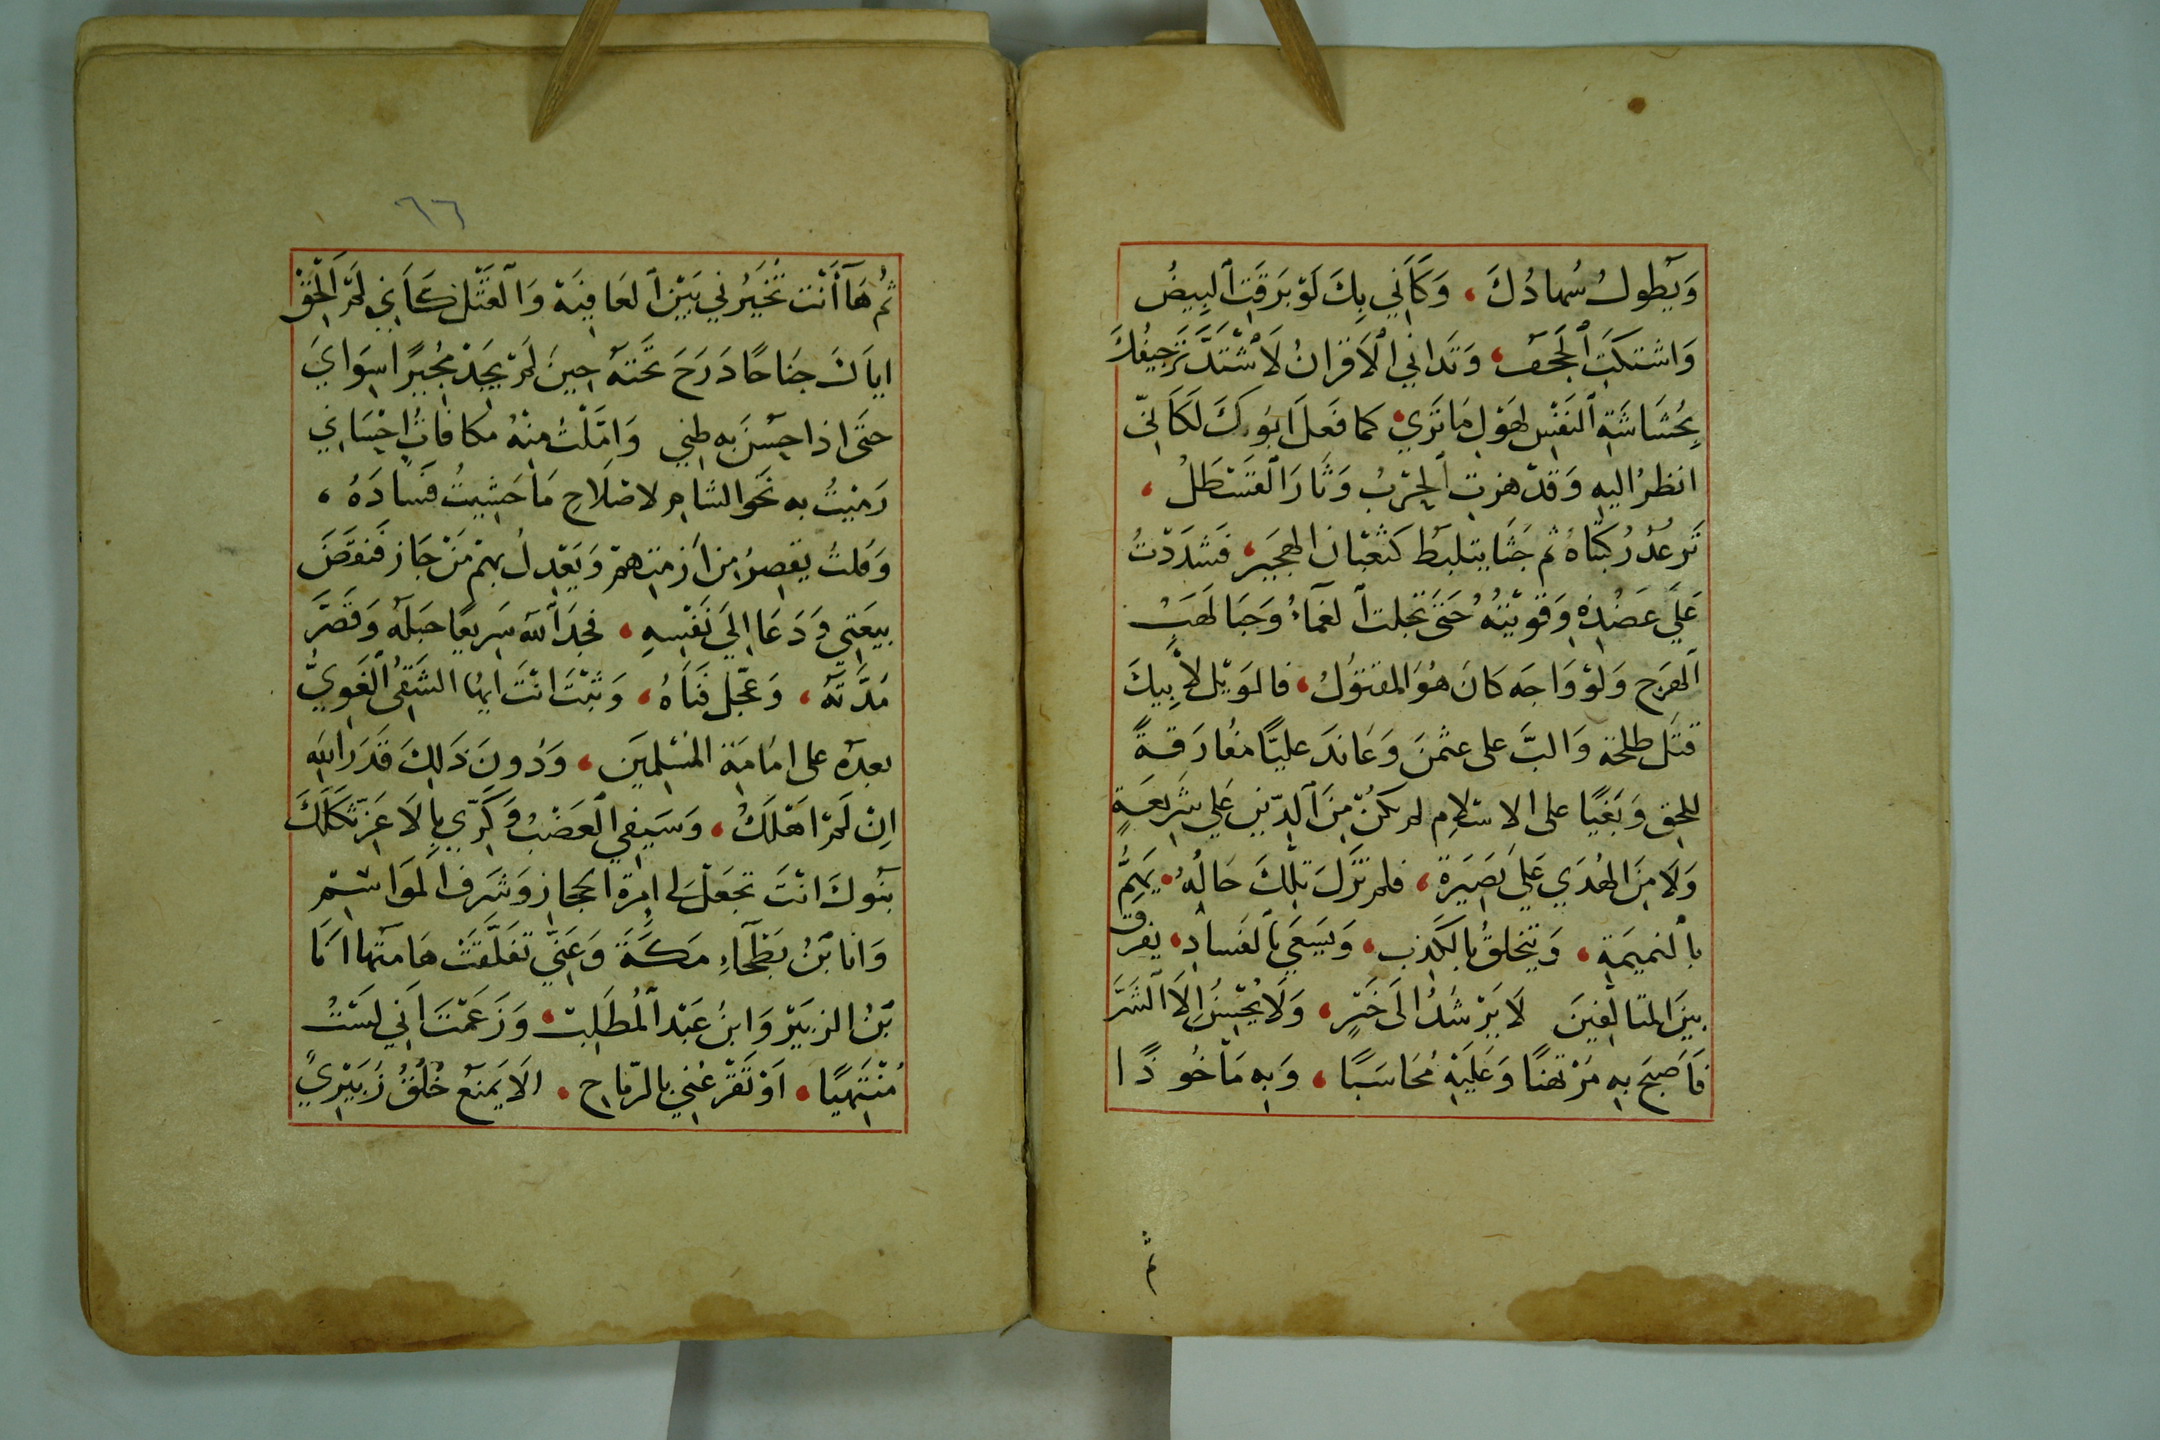 وَيَطولُ سُهادُكَ، وَكَأَنِّي بِكَ لَوْ بَرَقَتِ ٱلبِيضُ
وَاشتكَتِ ٱلجَحَف، وَتَدانَي ٱلاَقرانُ لَاشْتَدَّ تَرَجيفُكَ
بِحُشَاشَةِ ٱلنَفْسِ لهَوْلِ مَا تَرَي، كما فَعَلَ ابُوكَ لَكَأَنّي
انظرُ اليهِ وَقدْ هزتِ ٱلحَرْبُ وَثَارَ ٱلقَسْطَلُ،
تَرعُدُ رُكبَتَاهُ ثم جَثَا يتلبَّط كَثعْبَان الهجَير، فَشدَدْتُ
عَلَي عَضُدِهِ وَقوَّيْتُهُ حَتَّى تجلت ٱلغمّاءُ وَخبَا لَهَبُ
ٱلهَرَج وَلَوْ وَاجَه كَانَ هُوَ المَقتُولُ، فالوَيْل لأَبِيكَ
قتَل طلحة وَالبَّ على عثمٰنَ وَعَاندَ عليًّا مفُارَقةً
للحق وَبَغيًا على الاسْلامِ لم يكُنْ مِنَ ٱلدّين عَلي شَرِيعَةٍ
وَلَا مِنَ الهُدَي عَلَي بَصَيرَة، فلم تزَل تِلكَ حَالُهُ، يَهِمُّ
بٱلنميمَةِ، وَيتخلقُ بالكَذبِ، وَيَسَعَي بٱلفَسادِ، يفرق
بينَ المتآلفينَ لَا يَرْشدُ الَى خَيْرٍ، وَلَا يُحْسِنُ اِلَّا ٱلشَرَّ
فَاَصبَح بِهِ مُرْتهنًا وَعَليَهِ مُحَاسَبًا، وَبِه مَأْخُوذًا
ثم
٦٦
ثُم هَآ أَنْت تُخَيرُني بَيْنَ ٱلعَافِيَة وَٱلقَتْل كَأَنِّي لَمْ اَلْحَقْ
اياكَ جَناحًا دَرَجَ تَحْتَهُ حِينَ لَمْ يَجِدْ مُجِيرًا سِوَايَ
حتَى اذا حسُنَ بِه ظني وَامَّلْتُ مِنْهُ مكافاتُ اِحْسَاني
رَميْتُ به نَحو الشَامِ لاصْلاحِ مَا خَشِيتُ فَسَادَهُ،
وَقلتُ يقصرُ من اَزمتهمْ وَيَعْدِلُ بهمْ مَنْ جَاز فَنقَضَ
بيعَتِي وَدَعَا اِلَي نَفْسِهِ، فجَذَّ ٱللهُ سَرِيعًا حَبلَهُ وَقَصَّرَ
مُدَّتَهُ، وَعَجّل فَنَاهُ، وَثبْتَ انْتَ ايُها الشَقِيُ ٱلغَوِيُّ
بعدَهُ على امَامَة المُسْلِمِيَن، وَدُونَ ذَلِكَ قَدَرَ ٱللهِ
اِنْ لَمْ اَهْلَكْ، وَسَيفِي ٱلعَضْبُ وَكَرّي بِالاَعِزَة ثَكلَكَ
بَنُوكَ انْتَ تجعَلْ لِي اِمْرَةَ الحجاز وَشرَف المَوَاسِم
وَانا بْنُ بَطْحَآءِ مَكَةَ وَعَنّي تَفَلَّقَتْ هَامتُها انَا
بْنُ الزبيَرْ وَابنُ عَبْد ٱلمُطَلِبْ، وَزَعَمْتَ اَنّي لَسْتُ
مُنْتَهِيًا، اَوْ تَقرَعُني بالرّماحِ، الَا يَمنَعْ خُلُقُ زُبَيْرِيً